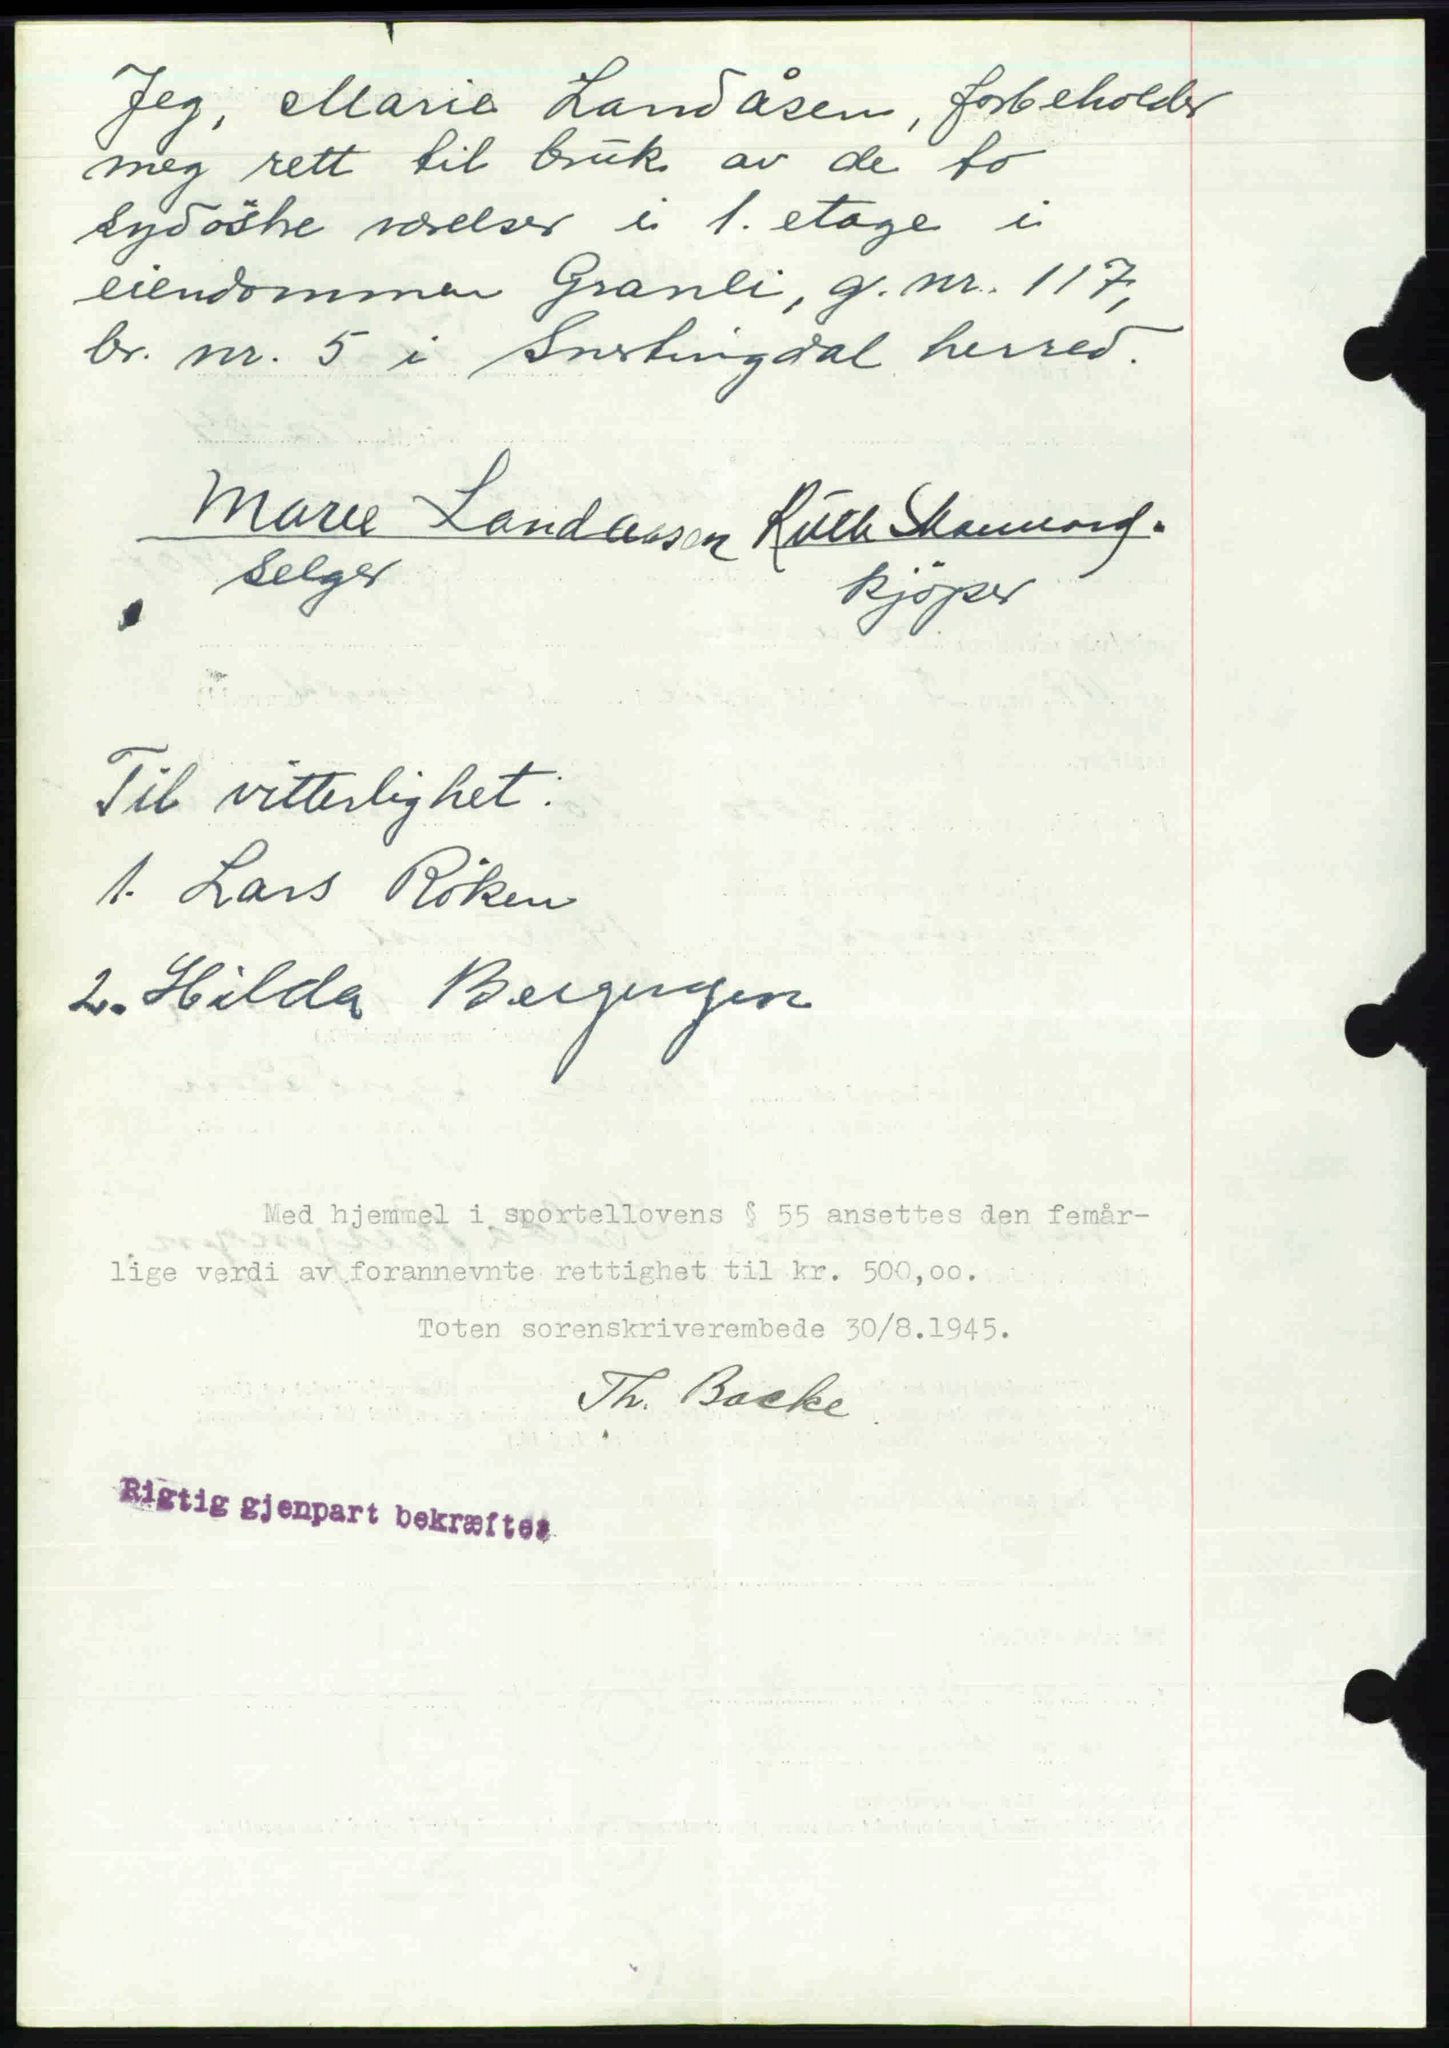 Jeg, Marie Landåsen, forbeholder
meg rett til bruk av de to
sydöstre værelser i 1. etage i
eiendommen Granli, g. nr. 117,
br. nr. 5 i Snertingdal herred.
Marie Landaasen Ruth
Selger kjöper
Til vitterlighet:
1. Lars Röken
2. Hilda Bergengen
Med hjemmel i sportellovens § 55 ansettes den femår-
lige verdi av forannevnte rettighet til kr. 500,oo.
Toten sorenskriverembede 30/8.1945.
Th. Backe
Rigtig gjenpart bekræftes